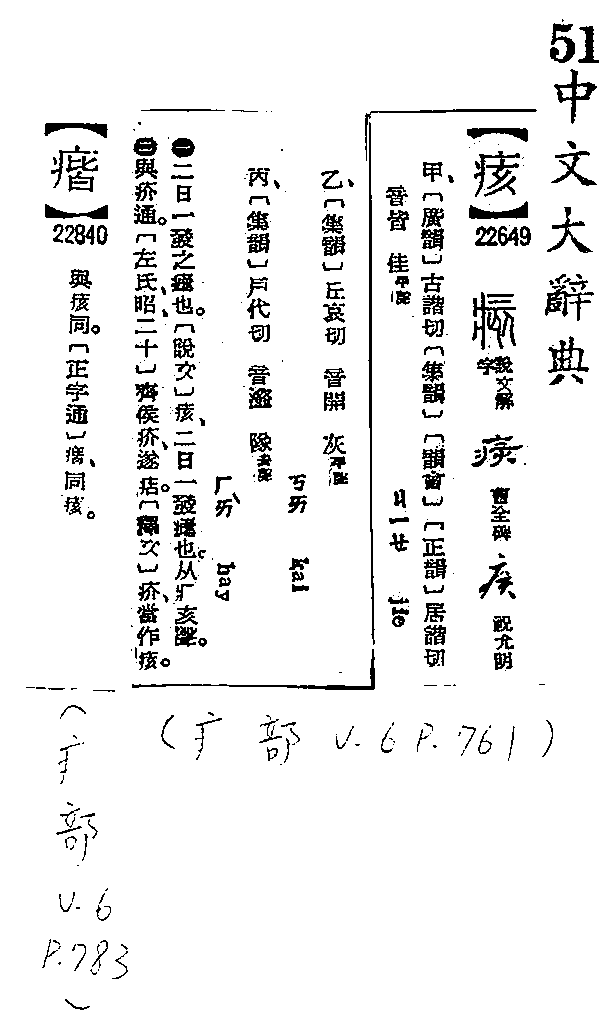 51
中文大辭典
【痎】
22649
說文解字
曹全碑
祝允明
甲、〔廣韻〕古諧切〔集韻〕、〔韻會〕、〔正韻〕居諧切
音皆 佳平聲
ㄐㄧㄝ jie
乙、〔集韻〕丘哀切 音開 灰平聲
ㄎㄞ kai
丙、〔集韻〕戶代切 音瀣 隊去聲
ㄏㄞˋ hay
㊀二日一發之瘧也。〔說文〕痎、二日一發瘧也。从疒亥聲。
㊁與疥通。〔左氏、昭、二十〕齊侯疥、遂痁。〔釋文〕疥、當作痎。
【瘖】
22840
與痎同。〔正字通〕㾬、同痎。
(疒部 V.6 P.761)
(疒部 V.6 P.783)